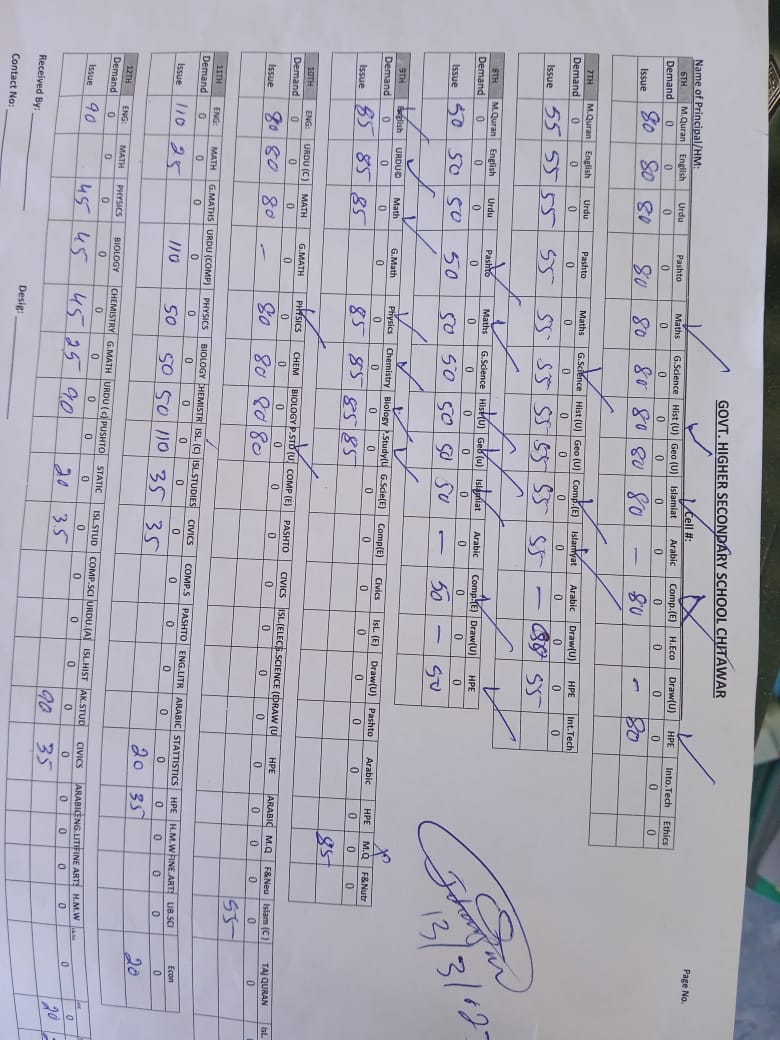 GOVT. HIGHER SECONDARY SCHOOL CHITAWAR
Page No.
Name of Principal/HM: Cell #:
6TH M.Quran English Urdu Pashto Maths G.Science Hist (U) Geo (U) Islamiat Arabic Comp.(E) H.Eco Draw(U) HPE Into.Tech Ethics
Demand 0 0 0 0 0 0 0 0 0 0 0 0 0 0 0 0
Issue 80 80 80 80 80 80 80 80 80 — 80 - 80
7TH M.Quran English Urdu Pashto Maths G.Science Hist (U) Geo (U) Comp.(E) Islamyat Arabic Draw(U) HPE Int.Tech
Demand 0 0 0 0 0 0 0 0 0 0 0 0 0 0
Issue 55 55 55 55 55 55 55 55 55 55 — 55
8TH M.Quran English Urdu Pashto Maths G.Science Hist(U) Geo (U) Islamiat Arabic Comp.(E) Draw(U) HPE
Demand 0 0 0 0 0 0 0 0 0 0 0 0 0
Issue 50 50 50 50 50 50 50 50 50 — 50 — 50
13/3/
9TH English URDU© Math G.Math Physics Chemistry Biology P.Study(U G.Scie(E) Comp(E) Civics Isl. (E) Draw(U) Pashto Arabic HPE M.Q F&Nutr
Demand 0 0 0 0 0 0 0 0 0 0 0 0 0 0 0 0 0 0
Issue 85 85 85 85 85 85 85 85
10TH ENG: URDU (C) MATH G.MATH PHYSICS CHEM BIOLOGY P.STU(U) COMP (E) PASHTO CIVICS ISL.(ELEC G.SCIENCE (E DRAW (U HPE ARABIC M.Q F&Neu Islam (C) TAJ QURAN Isl.
Demand 0 0 0 0 0 0 0 0 0 0 0 0 0 0 0 0 0 0 0 0
Issue 80 80 80 — 80 80 80 80 55
11TH ENG: MATH G.MATHS URDU (COMP) PHYSICS BIOLOGY CHEMISTR ISL. (C) ISL.STUDIES CIVICS COMP.S PASHTO ENG.LITR ARABIC STATTISTICS HPE H.M.W FINE.ART LIB.SCI Econ
Demand 0 0 0 0 0 0 0 0 0 0 0 0 0 0 0 0 0 0 0 0
Issue 110 25 110 50 50 50 110 35 35 20 35 20
12TH ENG: MATH PHYSICS BIOLOGY CHEMISTRY G.MATH URDU ( c) PUSHTO STATIC ISL.STUD COMP.SCI URDU.(A) ISL.HIST AK.STUD CIVICS ARABIC ENG.LIT FINE ART H.M.W
Demand 0 0 0 0 0 0 0 0 0 0 0 0 0 0 0 0 0 0 0 0 0
Issue 90 45 45 45 25 90 20 35 90 35 20
Received By: Desig:
Contact No: